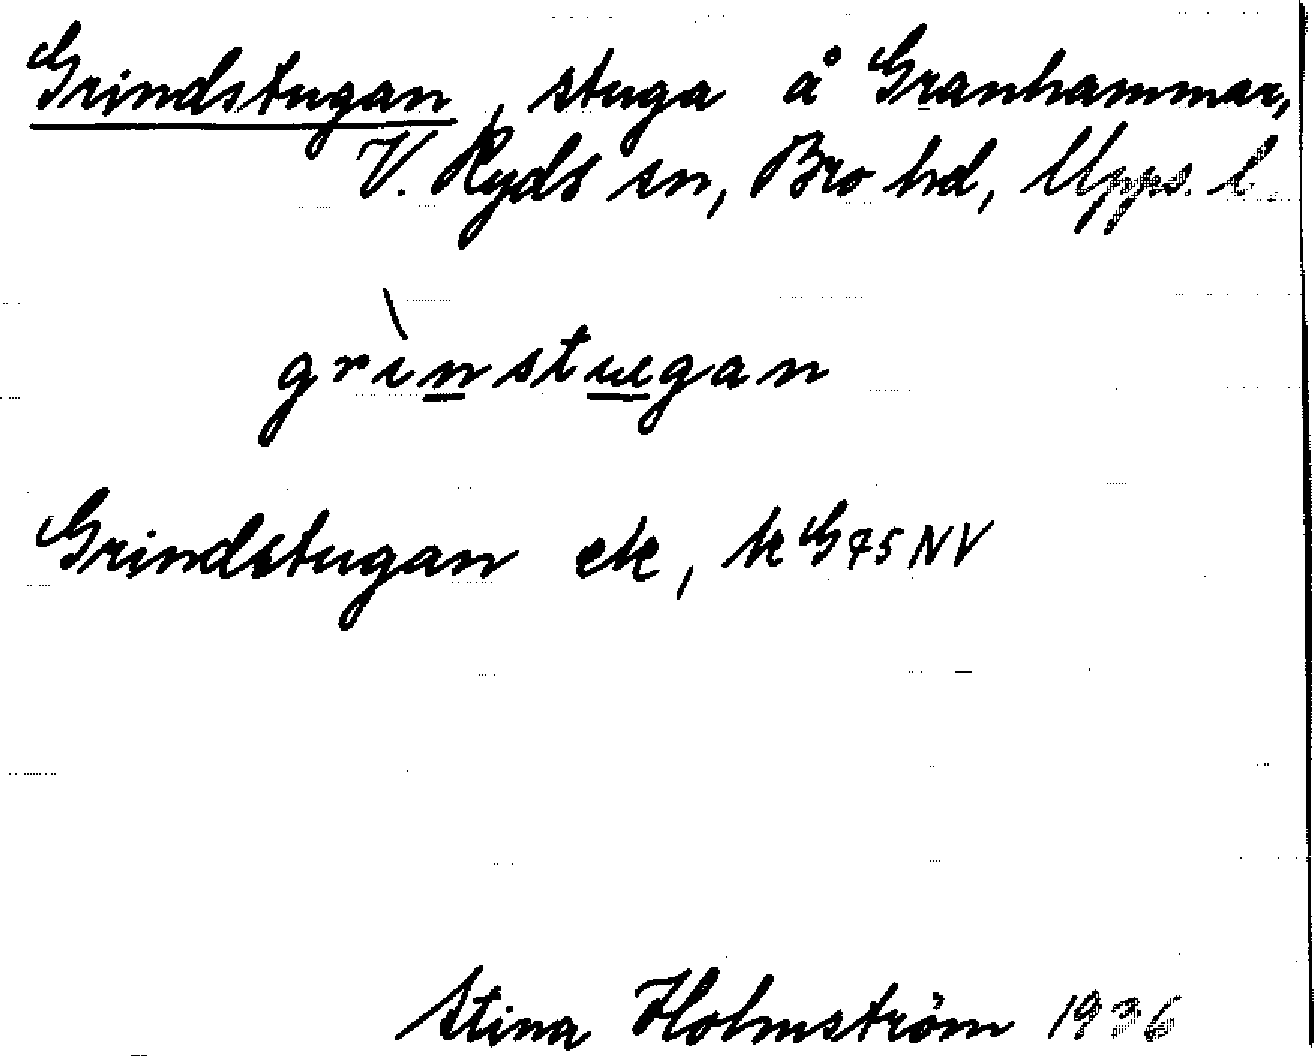 Grindstugan, stuga å Granhammar,
V. Ryds sn, Bro hd, Upps. l.
grìnstugan
Grindstugan ek, k G 75 NV
Stina Holmström 1936